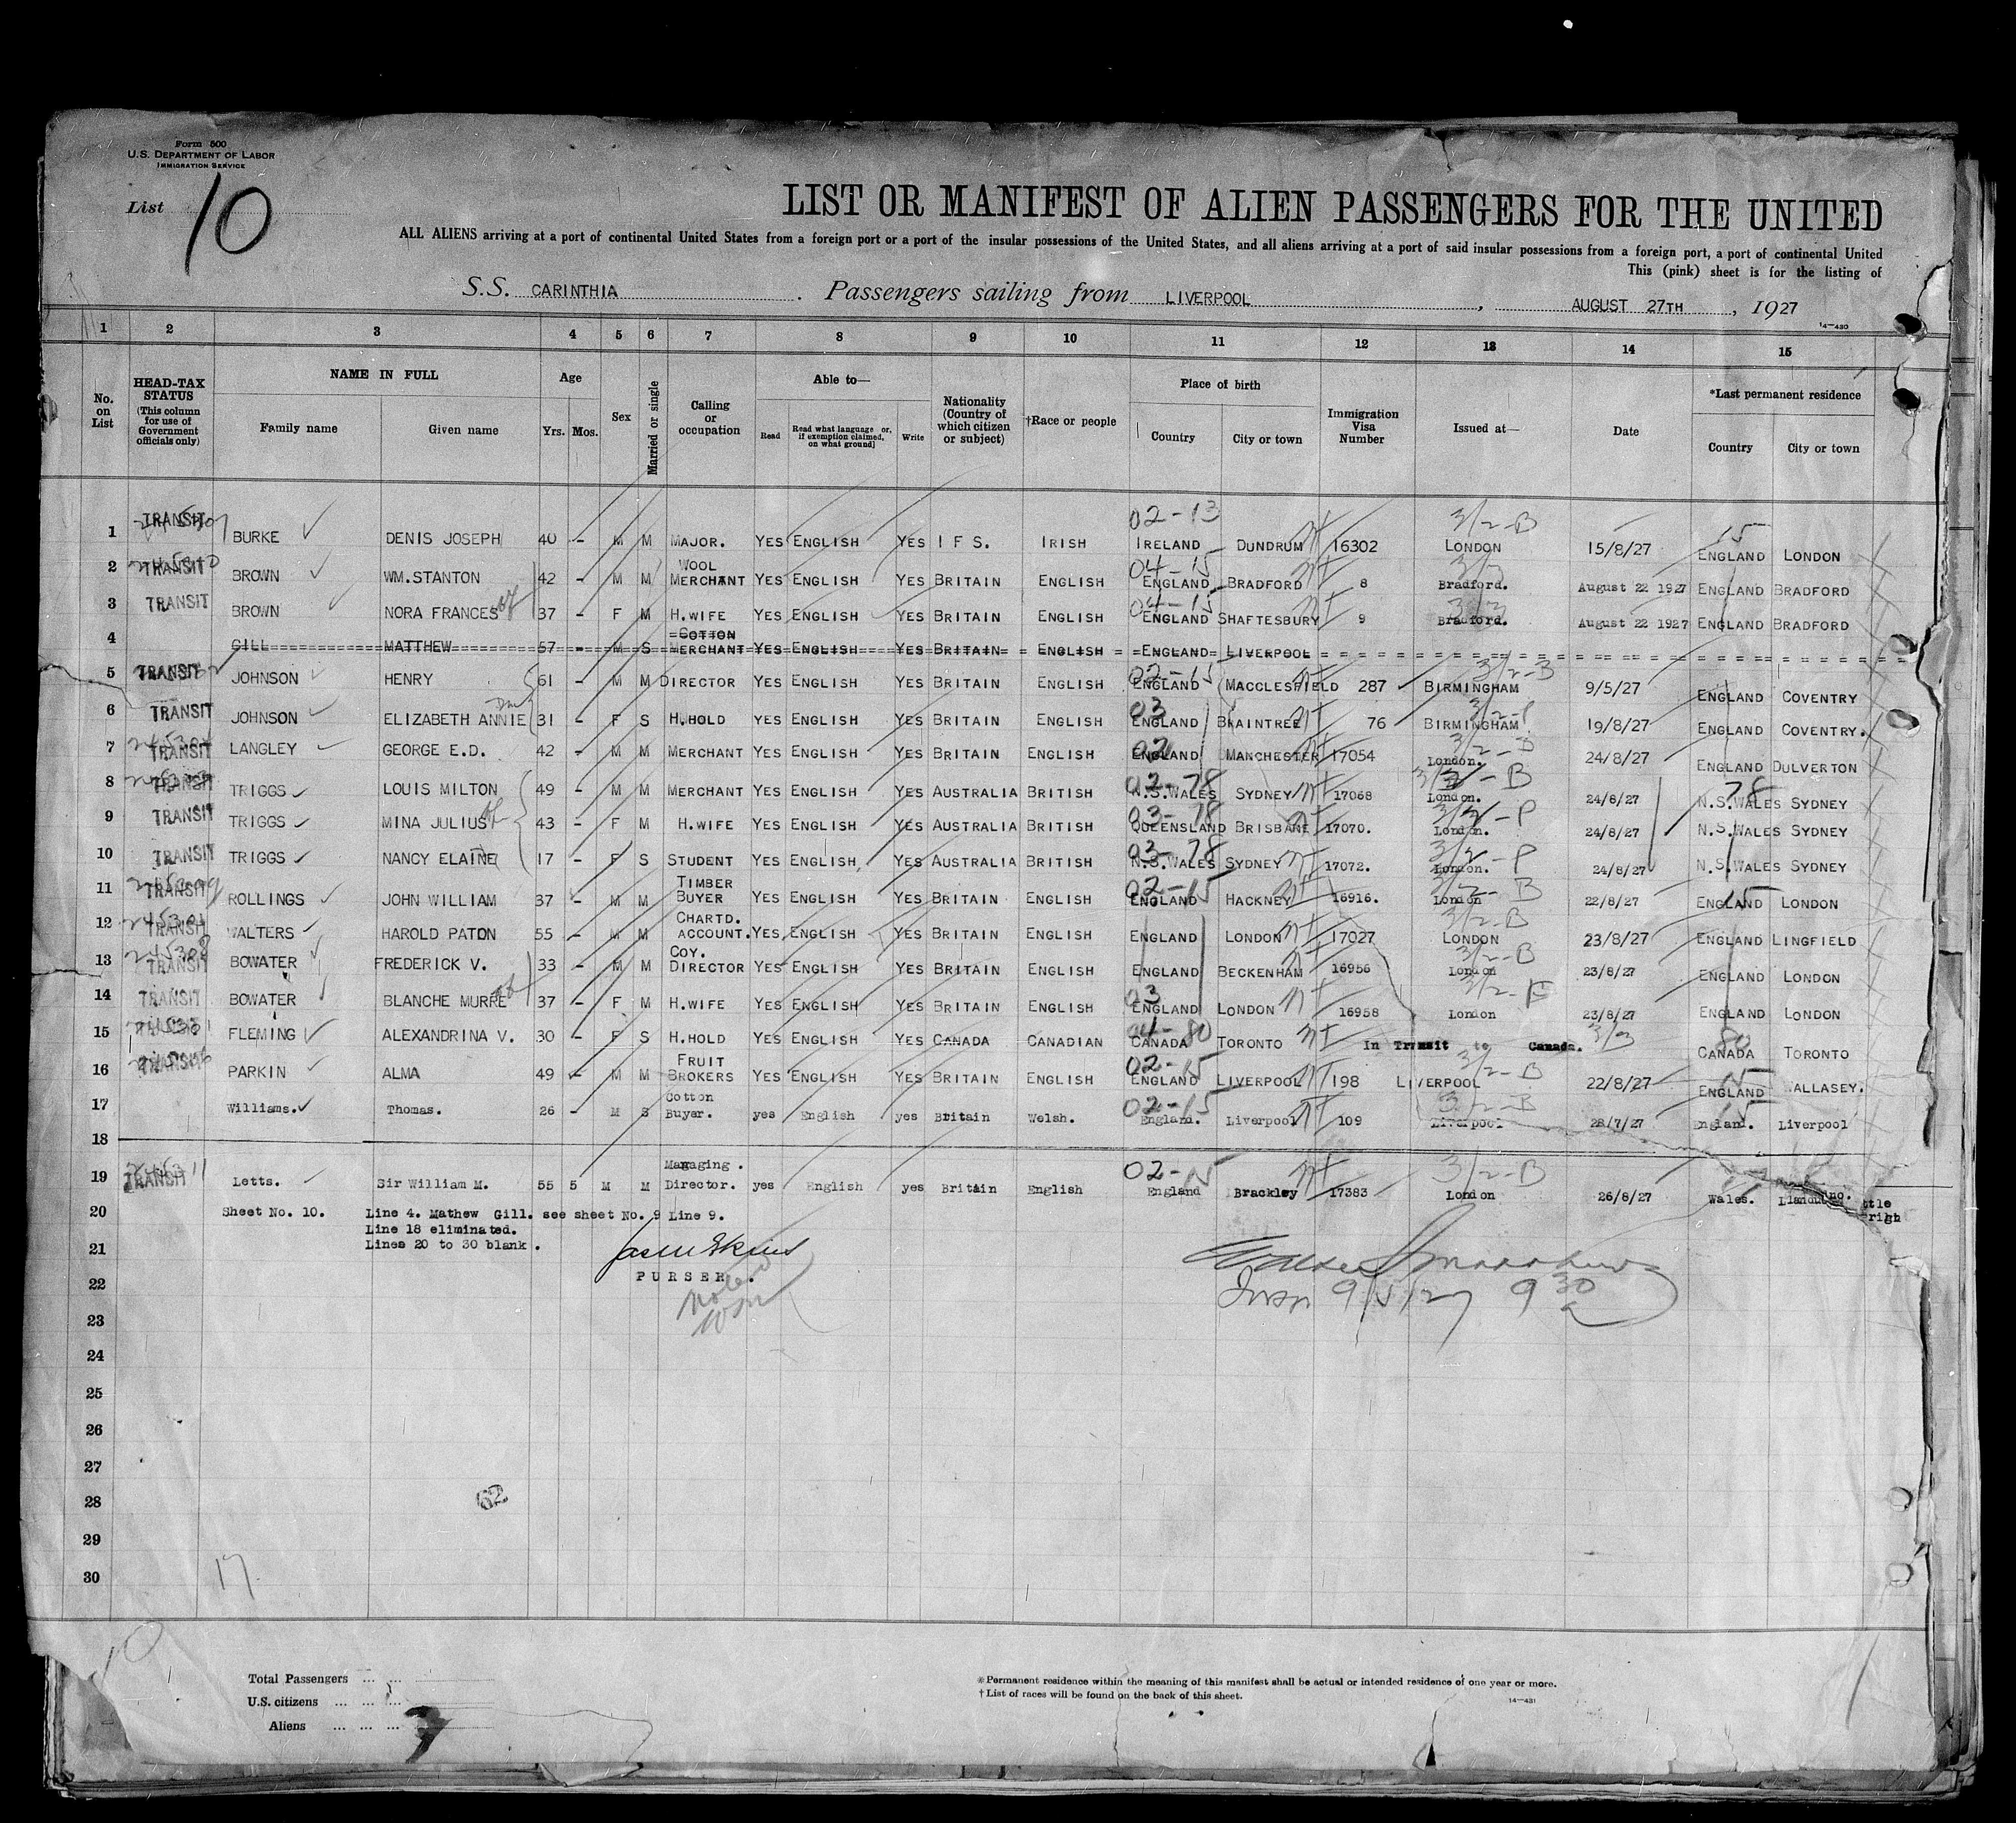 Form 500
U.S. DEPARTMENT OF LABOR
IMMIGRATION SERVICE
List 10
LIST OR MANIFEST OF ALIEN PASSENGERS FOR THE UNITED
ALL ALIENS arriving at a port of continental United States from a foreign port or a port of the insular possessions of the United States, and all aliens arriving at a port of said insular possessions from a foreign port, a port of continental United
This (pink) sheet is for the listing of
S.S. CARINTHIA. Passengers sailing from LIVERPOOL, AUGUST 27TH, 1927
14-430
1 2 3 4 5 6 7 8 9 10 11 12 13 14 15
No. on List
HEAD-TAX STATUS (This column for use of Government officials only)
NAME IN FULL
Family name Given name
Age
Yrs. Mos.
Sex
Married or single
Calling or occupation
Able to—
Read Read what language or, if exemption claimed, on what ground] Write
Nationality (Country of which citizen or subject)
†Race or people
Place of birth
Country City or town
Immigration Visa Number
Issued at—
Date
*Last permanent residence
Country City or town
02-13 3/2-B 15
1 TRANSIT BURKE DENIS JOSEPH 40 - M M MAJOR. YES ENGLISH YES I F S. IRISH IRELAND DUNDRUM 16302 LONDON 15/8/27 ENGLAND LONDON
04-15 3/3
2 TRANSIT BROWN WM.STANTON 42 - M M WOOL MERCHANT YES ENGLISH YES BRITAIN ENGLISH ENGLAND BRADFORD 8 Bradford. August 22 1927 ENGLAND BRADFORD
04-15 3/3
3 TRANSIT BROWN NORA FRANCES 37 - F M H.WIFE YES ENGLISH YES BRITAIN ENGLISH ENGLAND SHAFTESBURY 9 Bradford. August 22 1927 ENGLAND BRADFORD
4 GILL MATTHEW 57 - M S COTTON MERCHANT YES ENGLISH YES BRITAIN ENGLISH ENGLAND LIVERPOOL
02-15 3/2-B
5 TRANSIT JOHNSON HENRY 61 - M M DIRECTOR YES ENGLISH YES BRITAIN ENGLISH ENGLAND MACCLESFIELD 287 BIRMINGHAM 9/5/27 ENGLAND COVENTRY
03 3/2-P
6 TRANSIT JOHNSON ELIZABETH ANNIE 31 - F S H.HOLD YES ENGLISH YES BRITAIN ENGLISH ENGLAND BRAINTREE 76 BIRMINGHAM 19/8/27 ENGLAND COVENTRY.
02 3/2-B
7 TRANSIT LANGLEY GEORGE E.D. 42 - M M MERCHANT YES ENGLISH YES BRITAIN ENGLISH ENGLAND MANCHESTER 17054 London. 24/8/27 ENGLAND DULVERTON
02-78 3/2-B 78
8 TRANSIT TRIGGS LOUIS MILTON 49 - M M MERCHANT YES ENGLISH YES AUSTRALIA BRITISH N.S.WALES SYDNEY 17068 London. 24/8/27 N.S.WALES SYDNEY
03-78 3/2-P
9 TRANSIT TRIGGS MINA JULIUS 43 - F M H.WIFE YES ENGLISH YES AUSTRALIA BRITISH QUEENSLAND BRISBANE 17070. London. 24/8/27 N.S.WALES SYDNEY
03-78 3/2-P
10 TRANSIT TRIGGS NANCY ELAINE 17 - F S STUDENT YES ENGLISH YES AUSTRALIA BRITISH N.S.WALES SYDNEY 17072. London. 24/8/27 N.S.WALES SYDNEY
02-15 3/2-B 15
11 TRANSIT ROLLINGS JOHN WILLIAM 37 - M M TIMBER BUYER YES ENGLISH YES BRITAIN ENGLISH ENGLAND HACKNEY 16916. London 22/8/27 ENGLAND LONDON
3/2-B
12 TRANSIT WALTERS HAROLD PATON 55 - M M CHARTD. ACCOUNT. YES ENGLISH YES BRITAIN ENGLISH ENGLAND LONDON 17027 LONDON 23/8/27 ENGLAND LINGFIELD
3/2-B
13 TRANSIT BOWATER FREDERICK V. 33 - M M COY. DIRECTOR YES ENGLISH YES BRITAIN ENGLISH ENGLAND BECKENHAM 16956 London 23/8/27 ENGLAND LONDON
03 3/2-P
14 TRANSIT BOWATER BLANCHE MURRE 37 - F M H.WIFE YES ENGLISH YES BRITAIN ENGLISH ENGLAND LONDON 16958 London 23/8/27 ENGLAND LONDON
04-80 3/3 80
15 TRANSIT FLEMING ALEXANDRINA V. 30 - F S H.HOLD YES ENGLISH YES CANADA CANADIAN CANADA TORONTO In Transit to Canada. CANADA TORONTO
02-15 3/2-B 15
16 TRANSIT PARKIN ALMA 49 - M M FRUIT BROKERS YES ENGLISH YES BRITAIN ENGLISH ENGLAND LIVERPOOL 198 LIVERPOOL 22/8/27 ENGLAND WALLASEY.
02-15 3/2-B 15
17 Williams. Thomas. 26 - M S Cotton Buyer. yes English yes Britain Welsh. England. Liverpool 109 Liverpool 28/7/27 England. Liverpool
18
02-15 3/2-B
19 TRANSIT Letts. Sir William M. 55 5 M M Managing Director. yes English yes Britain English England Brackley 17383 London 26/8/27 Wales. Llandudno.
20 Sheet No. 10. Line 4. Mathew Gill. see sheet No. 9 Line 9.
Line 18 eliminated.
21 Lines 20 to 30 blank.
PURSER.
22
23
24
25
26
27
28
62
29
30
17
10
Total Passengers
U.S. citizens
Aliens
*Permanent residence within the meaning of this manifest shall be actual or intended residence of one year or more.
†List of races will be found on the back of this sheet.
14-431